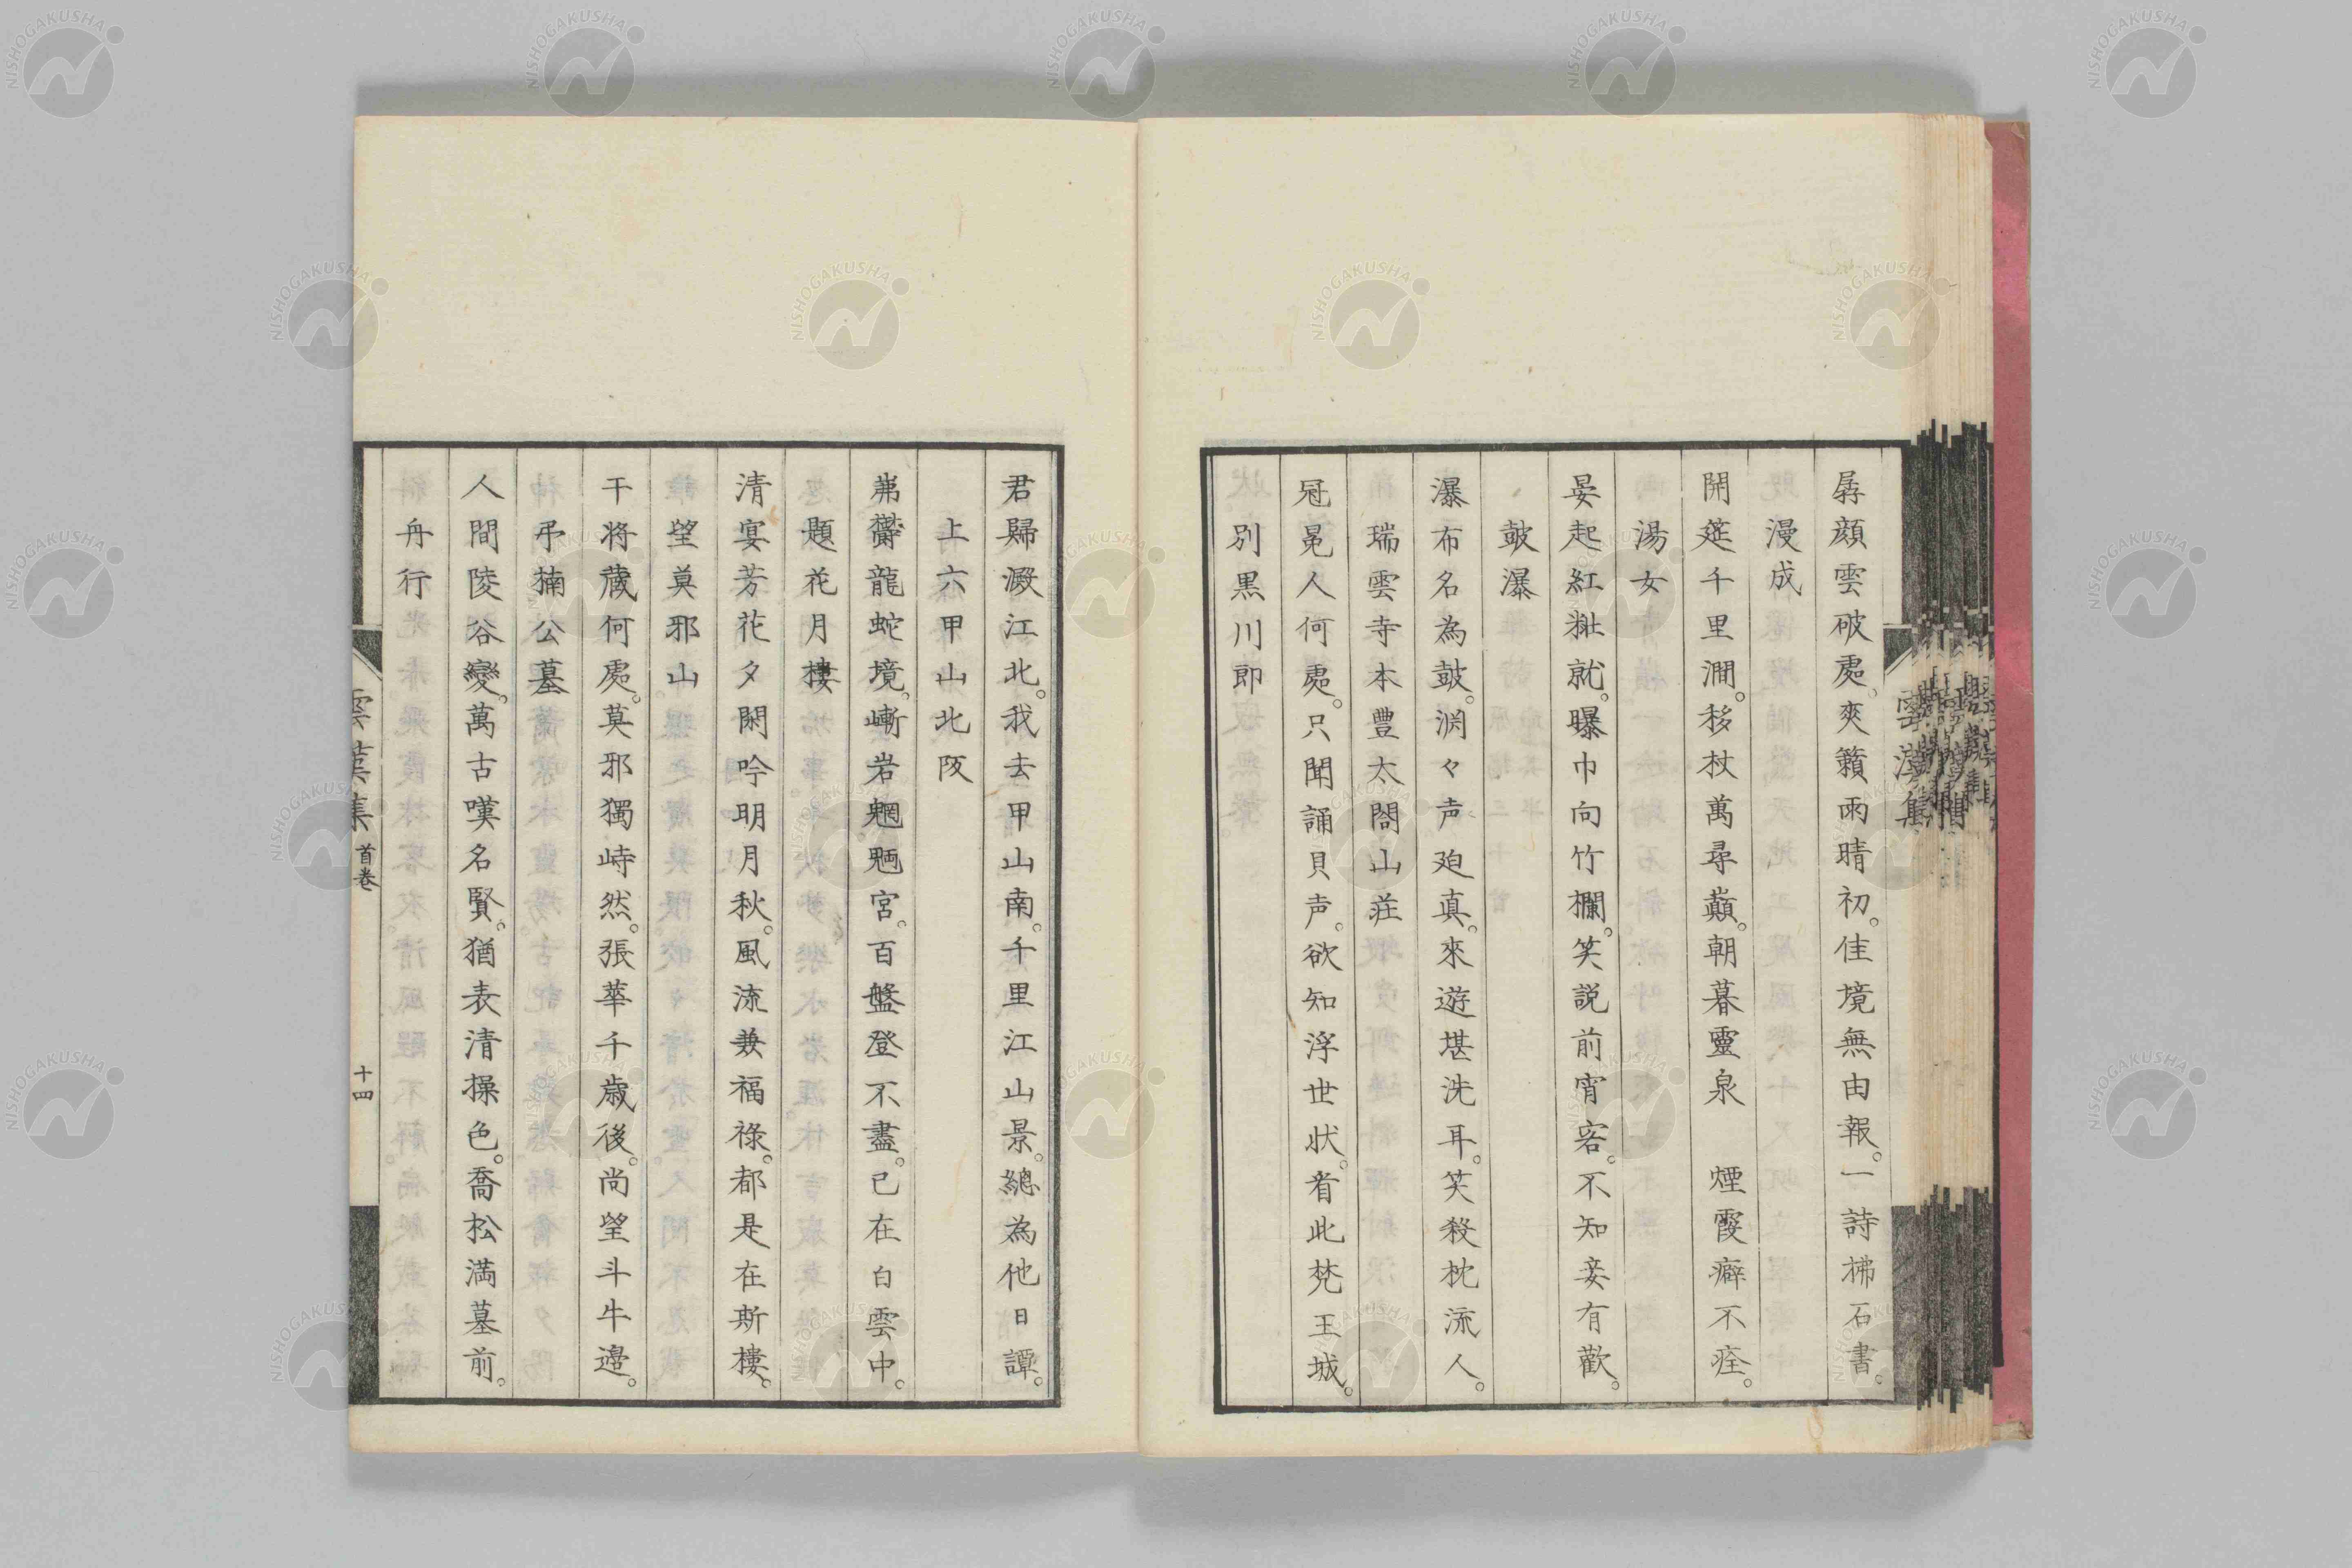 孱顔雲破處。爽籟雨晴初。佳境無由報。一詩拂石書。
漫成
開筵千里澗。移杖萬尋巓。朝暮靈泉　煙霞癖不痊。
湯女
晏起紅粧就。曝巾向竹欄。笑説前宵客。不知妾有歡。
鼓瀑
瀑布名為鼓。渕々声迫真。來遊堪洗耳。笑殺枕流人。
瑞雲寺本豊太閤山荘
冠冕人何處。只聞誦貝声。欲知浮世状。看此梵王城。
別黒川即
君歸澱江北。我去甲山南。千里江山景。總為他日譚。
上六甲山北阪
岪欝龍蛇境。嶄岩魍魎宮。百盤登不盡。已在白雲中。
題花月樓
清宴芳花夕。閑吟明月秋。風流兼福祿。都是在斯樓。
望莫邪山
干将蔵何處。莫邪獨峙然。張華千歳後。尚望斗牛邊。
弔楠公墓
人間陵谷變。萬古嘆名賢。猶表清操色。喬松満墓前。
舟行
雲漢集　首卷　十四